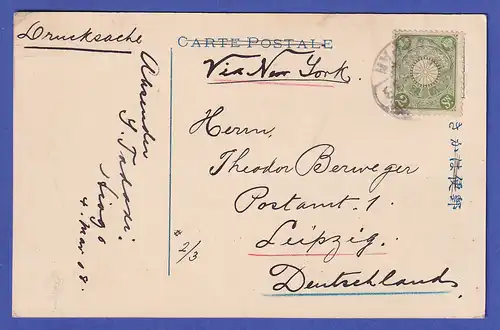 Drucksache
CARTE POSTALE
Via New York.
Absender
Hiogo
4. Mar 08.
Herrn,
Theodor Berweger
Postamt. 1
Leipzig.
Deutschland.
* 2/3
きかは便郵